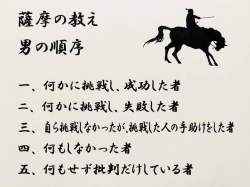 薩摩の教え
男の順序
一、何かに挑戦し、成功した者
二、何かに挑戦し、失敗した者
三、自ら挑戦しなかったが、挑戦した人の手助けをした者
四、何もしなかった者
五、何もせず批判だけしている者